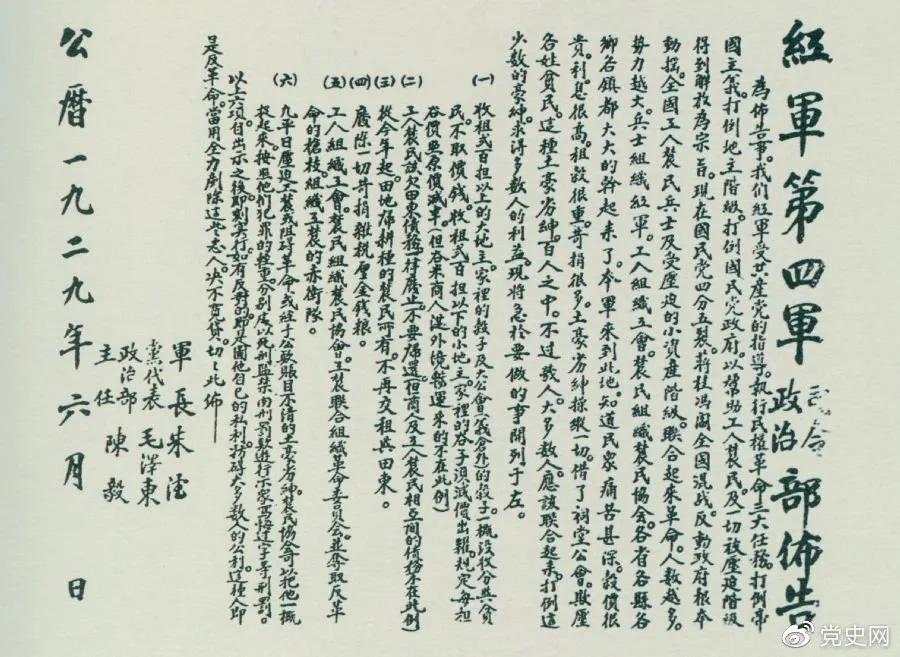 紅軍第四軍司令政治部佈告
為佈告事。我們紅軍受共產党的指導。執行民權革命三大任務。打倒帝
國主義。打倒地主階級。打倒國民党政府。以幫助工人農民。及一切被壓迫階級
得到解放為宗旨。現在國民党四分五裂。蔣桂馮閻全國混战。反動政府根本
動搖。全國工人農民兵士及受壓迫的小資產階級。聯合起来革命。人数越多。
势力越大。兵士組織紅軍。工人組織工會。農民組織農民協会。各省各縣各
鄉各鎮都大大的幹起来了。本軍来到此地。知道民眾痛苦甚深。穀價很
貴。利息很高。租穀很重。苛捐很多。土豪劣紳操縱一切。借了祠堂公會。欺壓
各姓貧民。這種土豪劣紳。百人之中。不过數人。大多数人。應該聯合起来。打倒這
少数的豪紳。求得多数人的利益。現將急於要做的事開列于左。
(一)收租弍百担以上的大地主。家裡的穀子及大公會(義倉外)的穀子。一概没收分與貧
民。不取價钱。收租弍百担以下的小地主。家裡的谷子須減價出糶。規定每担
谷價照原價減半。(但谷米商人從外境輸運来的不在此例)
(二)工人農民該欠田東債務。一律廢止。不要歸還。(但商人及工人農民相互间的債務不在此例)
(三)從今年起。田地歸耕種的農民所有。不再交租與田東。
(四)廢除一切苛捐雜税厘金錢粮。
(五)工人組織工會。農民組織農民協會。工農聯合組織革命委員会。並奪取反革
命的槍枝組織工農的赤衛隊。
(六)凡平日壓迫工農或阻碍革命或經手公款賬目不清的土豪劣紳。農民協會可以把他一概
捉起来。按照他们犯罪的輕重。分别處以死刑監禁肉刑罰款遊行示家写悔过字等刑罰。
以上六項自出示之後。即刻实行。如有反對的。即是圖他自己的私利。妨碍大多数人的公利。這種人即
是反革命。當用全力剷除這些惡人。决不寬貸。切々此佈
軍長朱德
黨代表毛澤東
政治部主任陳毅
公曆一九二九年六月 日
党史网